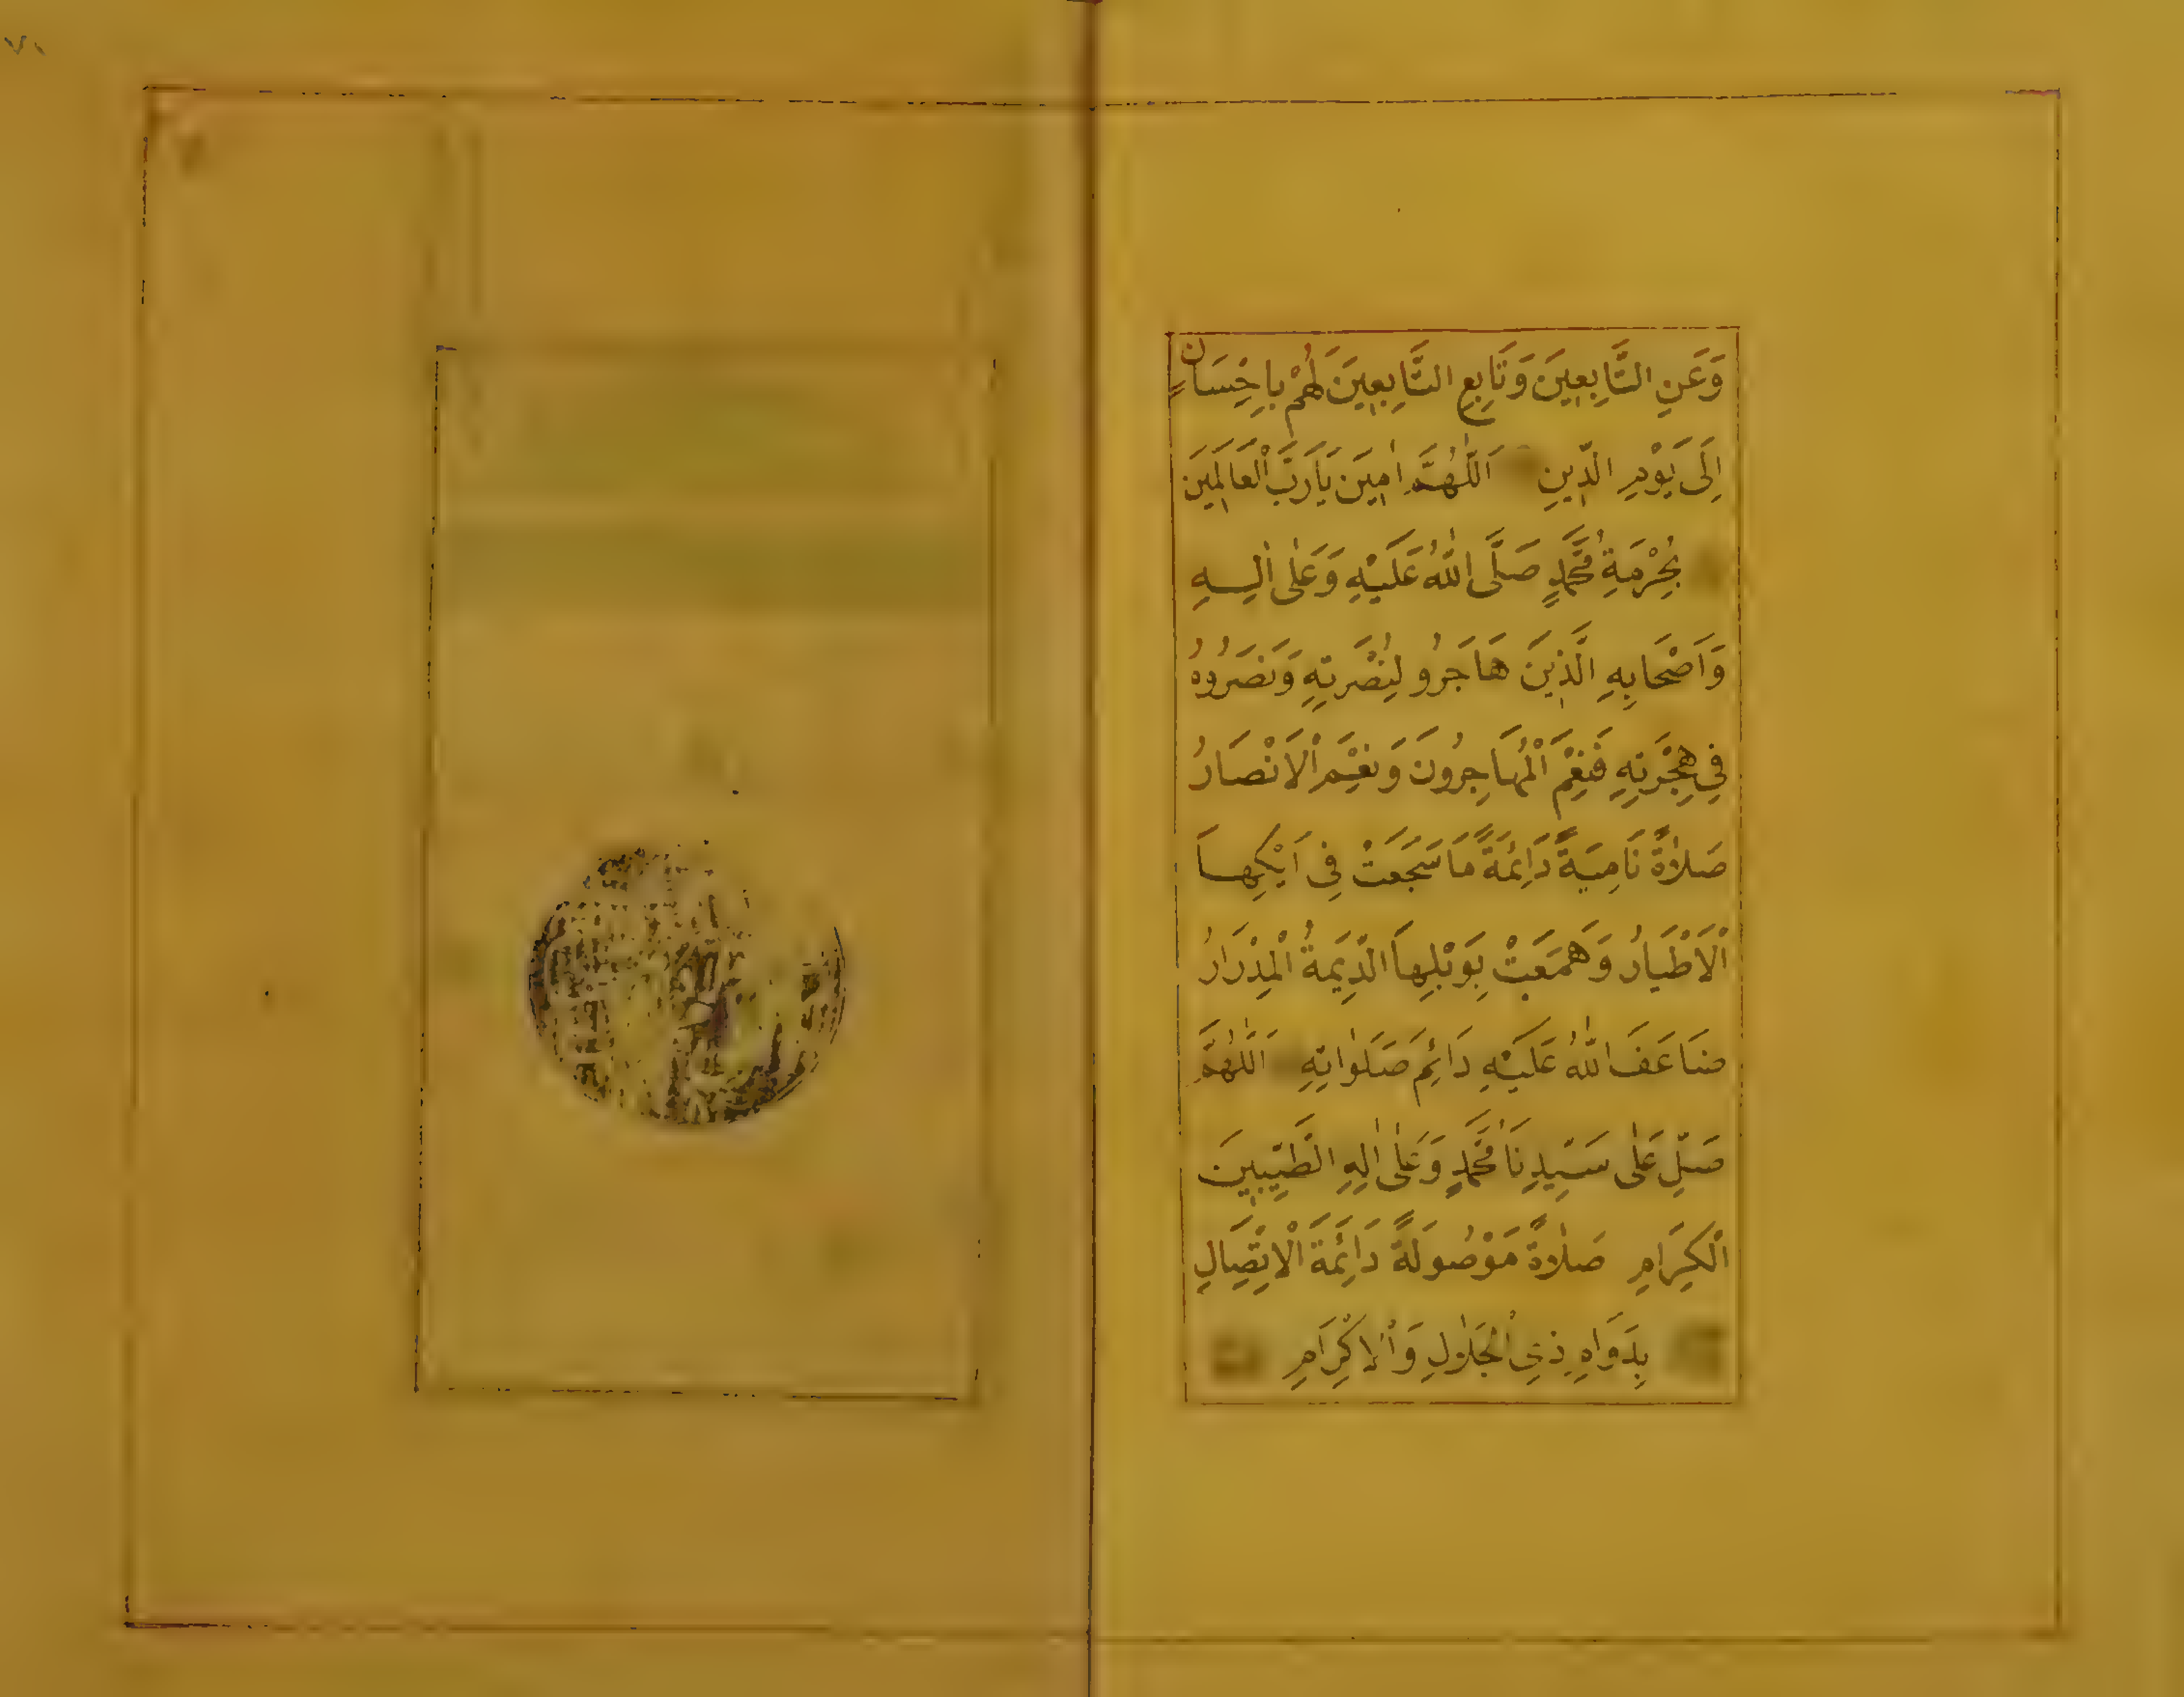 وَعَنِ التَّابِعِينَ وَتَابِعِ التَّابِعِينَ لَهُمْ بِاِحْسَانٍ
اِلَى يَوْمِ الدِّينِ اَللّٰهُمَّ اٰمِينَ يَارَبَّ الْعَالَمِينَ
بِحُرْمَةِ مُحَمَّدٍ صَلَّى اللّٰهُ عَلَيْهِ وَعَلٰى اٰلِهِ
وَاَصْحَابِهِ الَّذِينَ هَاجَرُو لِنُصْرَتِهِ وَنَصَرُوهُ
فِي هِجْرَتِهِ فَنِعْمَ الْمُهَاجِرُونَ وَنِعْمَ الْاَنْصَارُ
صَلَاةً نَامِيَةً دَائِمَةً مَاسَجَعَتْ فِي اَيْكِهَا
الْاَطْيَارُ وَهَمَعَتْ بِوَبْلِهَا الدِّيمَةُ الْمِدْرَارُ
ضَاعَفَ اللّٰهُ عَلَيْهِ دَائِمَ صَلَوٰاتِهِ اَللّٰهُمَّ
صَلِّ عَلٰى سَيِّدِنَا مُحَمَّدٍ وَعَلٰى اٰلِهِ الطَّيِّبِينَ
الْكِرَامِ صَلَاةً مَوْصُولَةً دَائِمَةَ الْاِتِّصَالِ
بِدَوَامِ ذِي الْجَلَالِ وَالْاِكْرَامِ
٧١